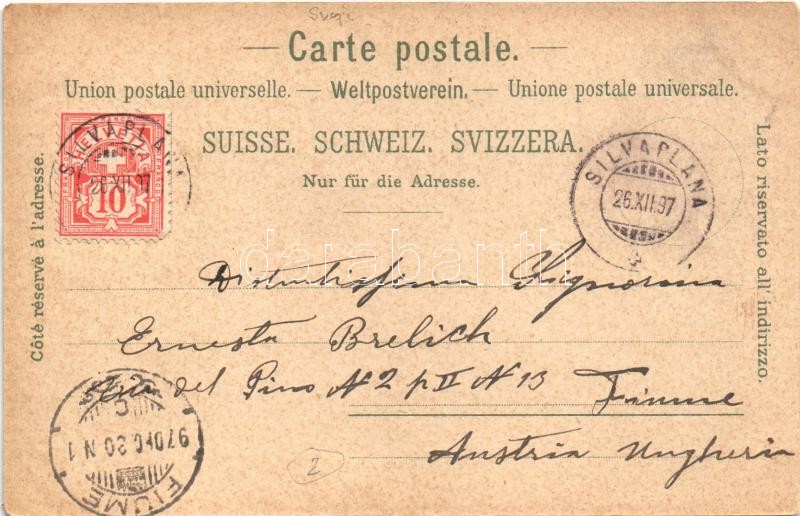 Carte postale.
Union postale universelle. — Weltpostverein. — Unione postale universale.
SUISSE. SCHWEIZ. SVIZZERA.
Nur für die Adresse.
Côté réservé à l'adresse.
Lato riservato all' indirizzo.
HELVETIA
10
SILVAPLANA
26.XII.97
SILVAPLANA
26.XII.97
darabanth
Distintissima Signorina
Ernesta Brelich
del Pino N 2 p II N 13
Fiume
Austria Ungheria
FIUME
2